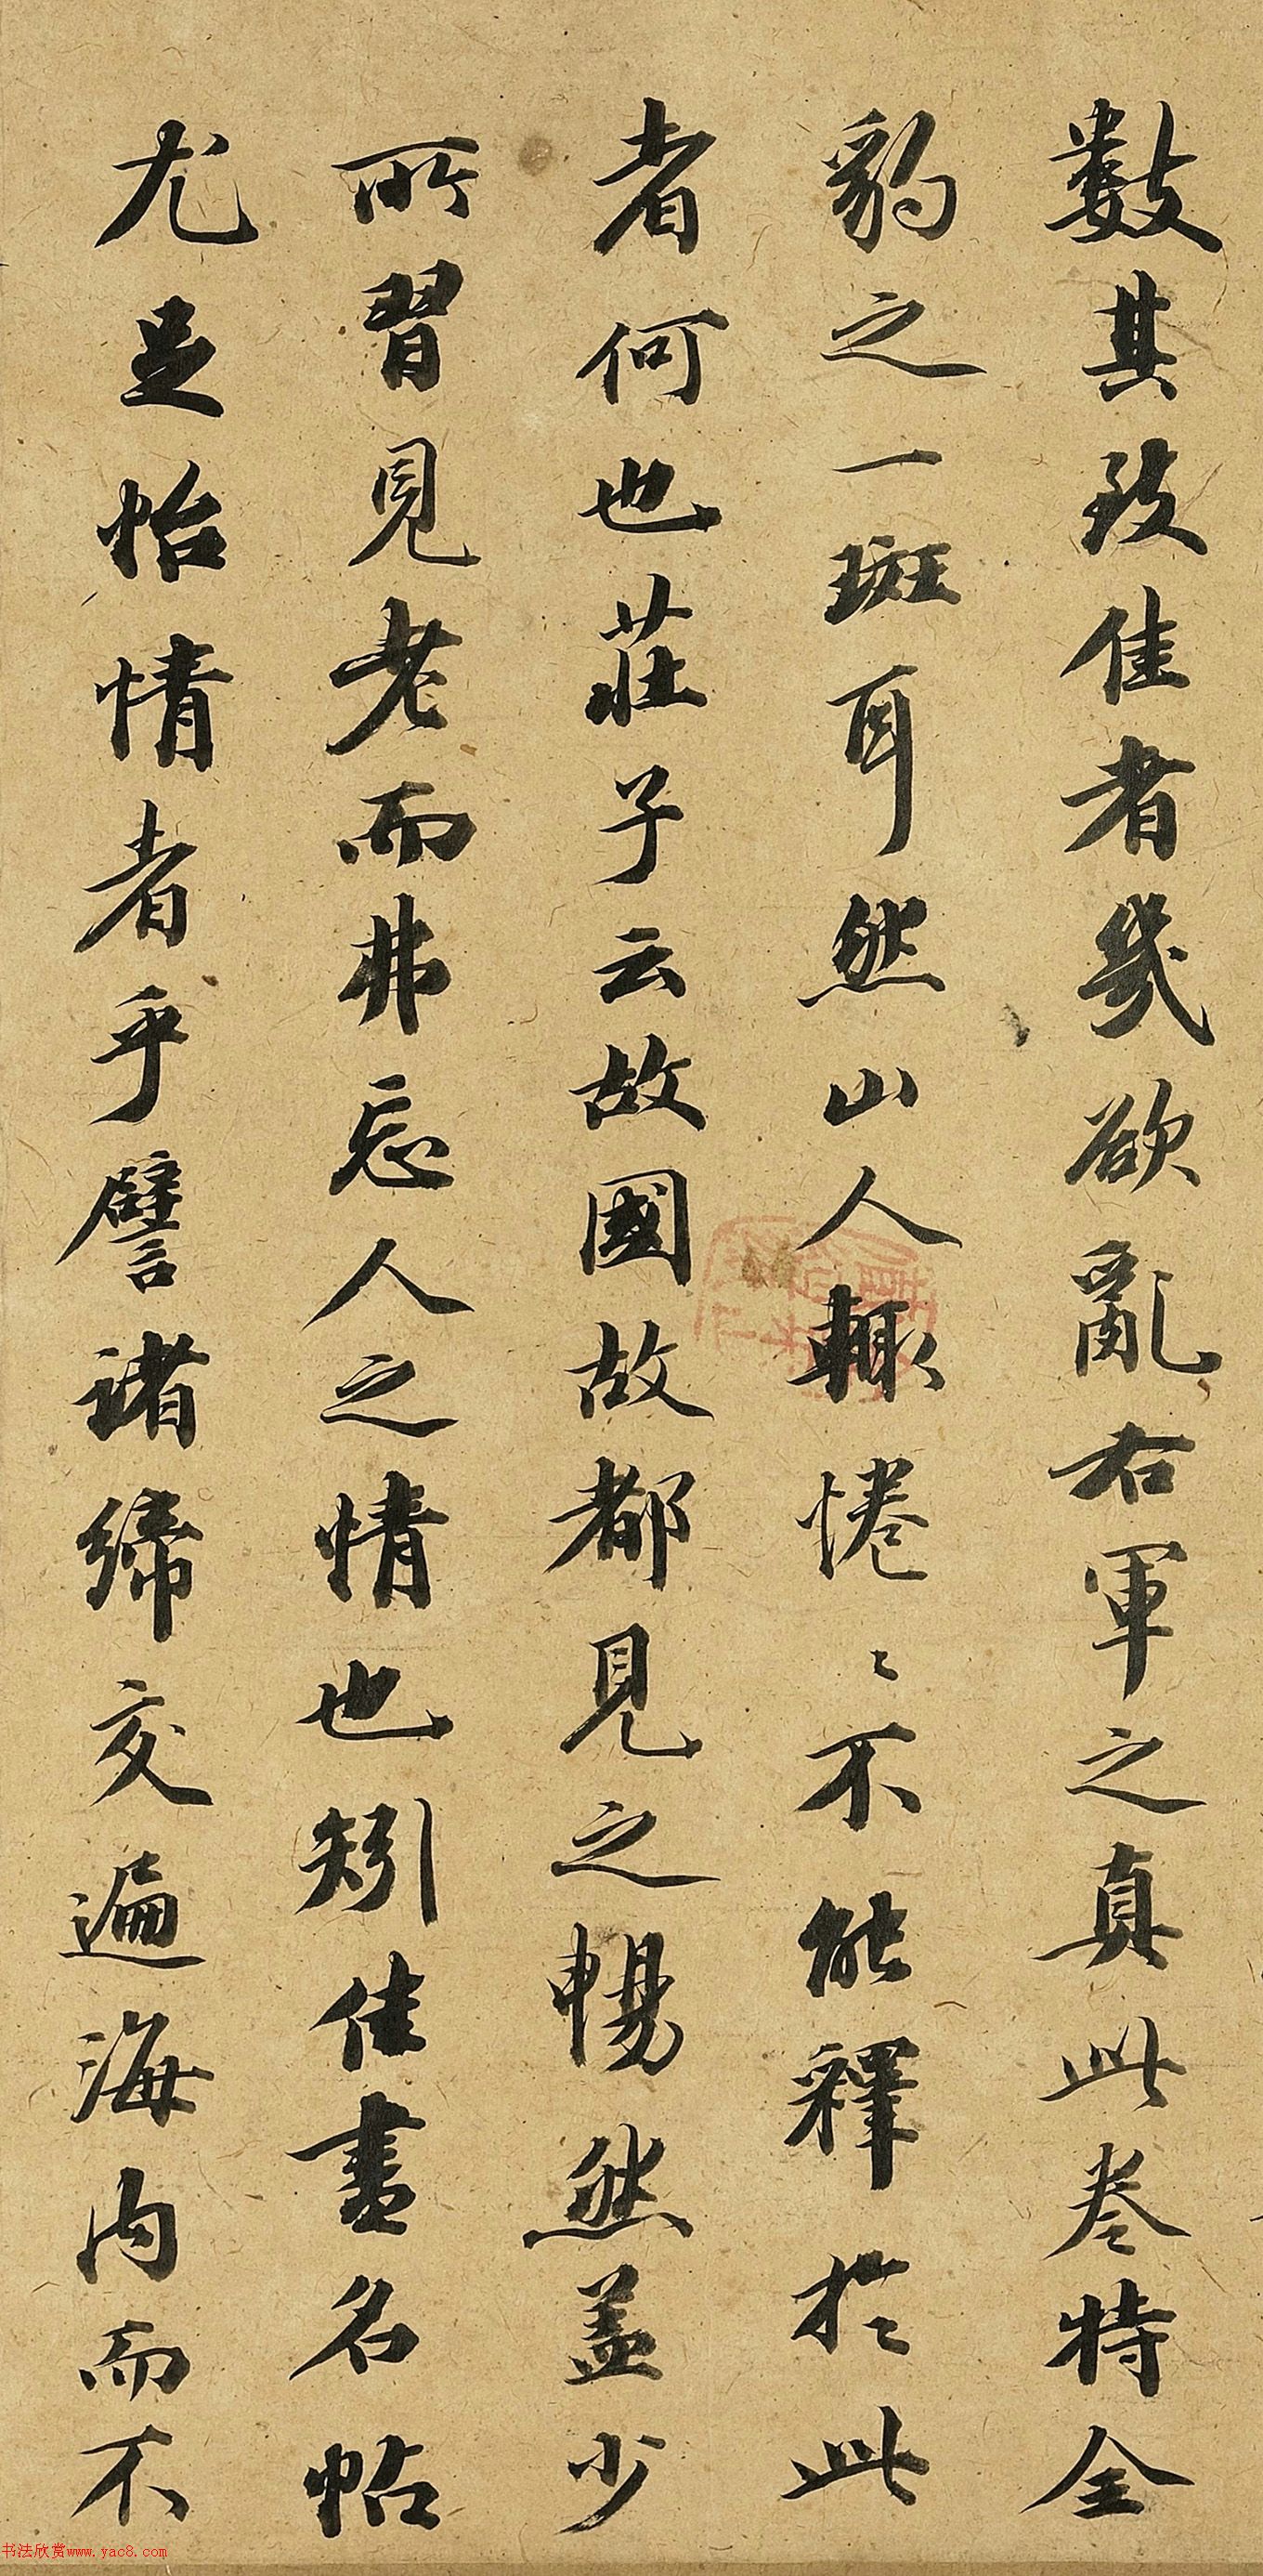 數其致佳者幾欲亂右軍之真此卷特全
豹之一斑耳然山人輒惓〻不能釋於此
者何也莊子云故國故都見之暢然盖少
所習見老而弗忘人之情也矧佳畫名帖
尤足怡情者乎譬諸締交遍海内而不
书法欣赏www.yac8.com